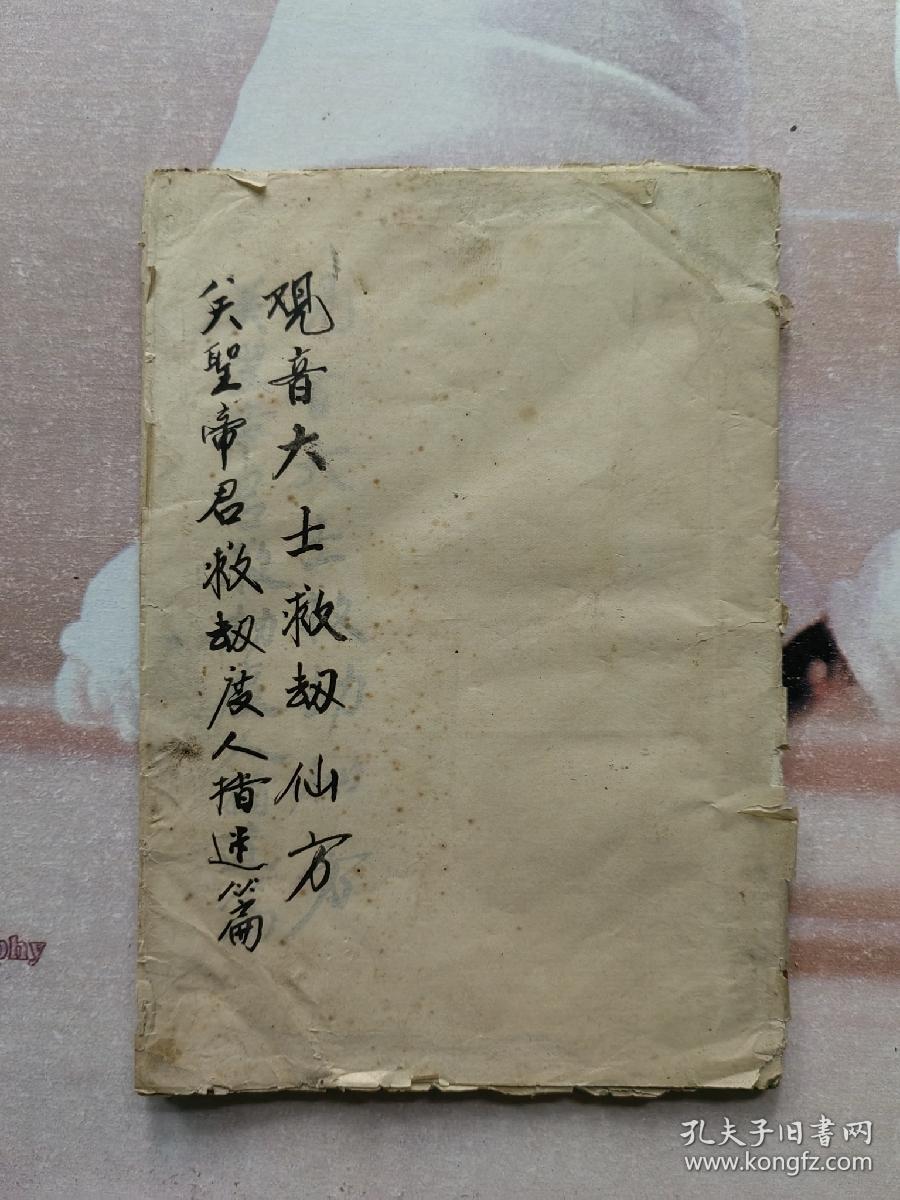 观音大士救劫仙方
关聖帝君救劫度人指迷篇
phy
孔夫子旧書网
www.kongfz.com